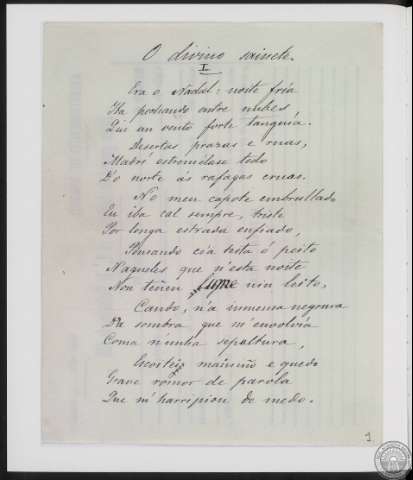 O divino sainete.
I
Era o Nadal: noite fría
Iba pechando entre nubes
Qu' un vento forte tanguía.
Desertas prazas e ruas,
Madri estremécese todo
D'o norte ás rafagas cruas.
No meu capote embrullado
Eu iba cal sempre, triste
Por longa estrada enfiado,
Pensando c'a testa ó peito
N'aqueles que n'esta noite
Non teñen lume nin leito,
Cando, n'a inmensa negrura
Da sombra que m'envolvía
Coma n'unha sepultura,
Escoitéi mainiño e quedo
Grave rómor de parola
Que m'harripiou de medo.
1